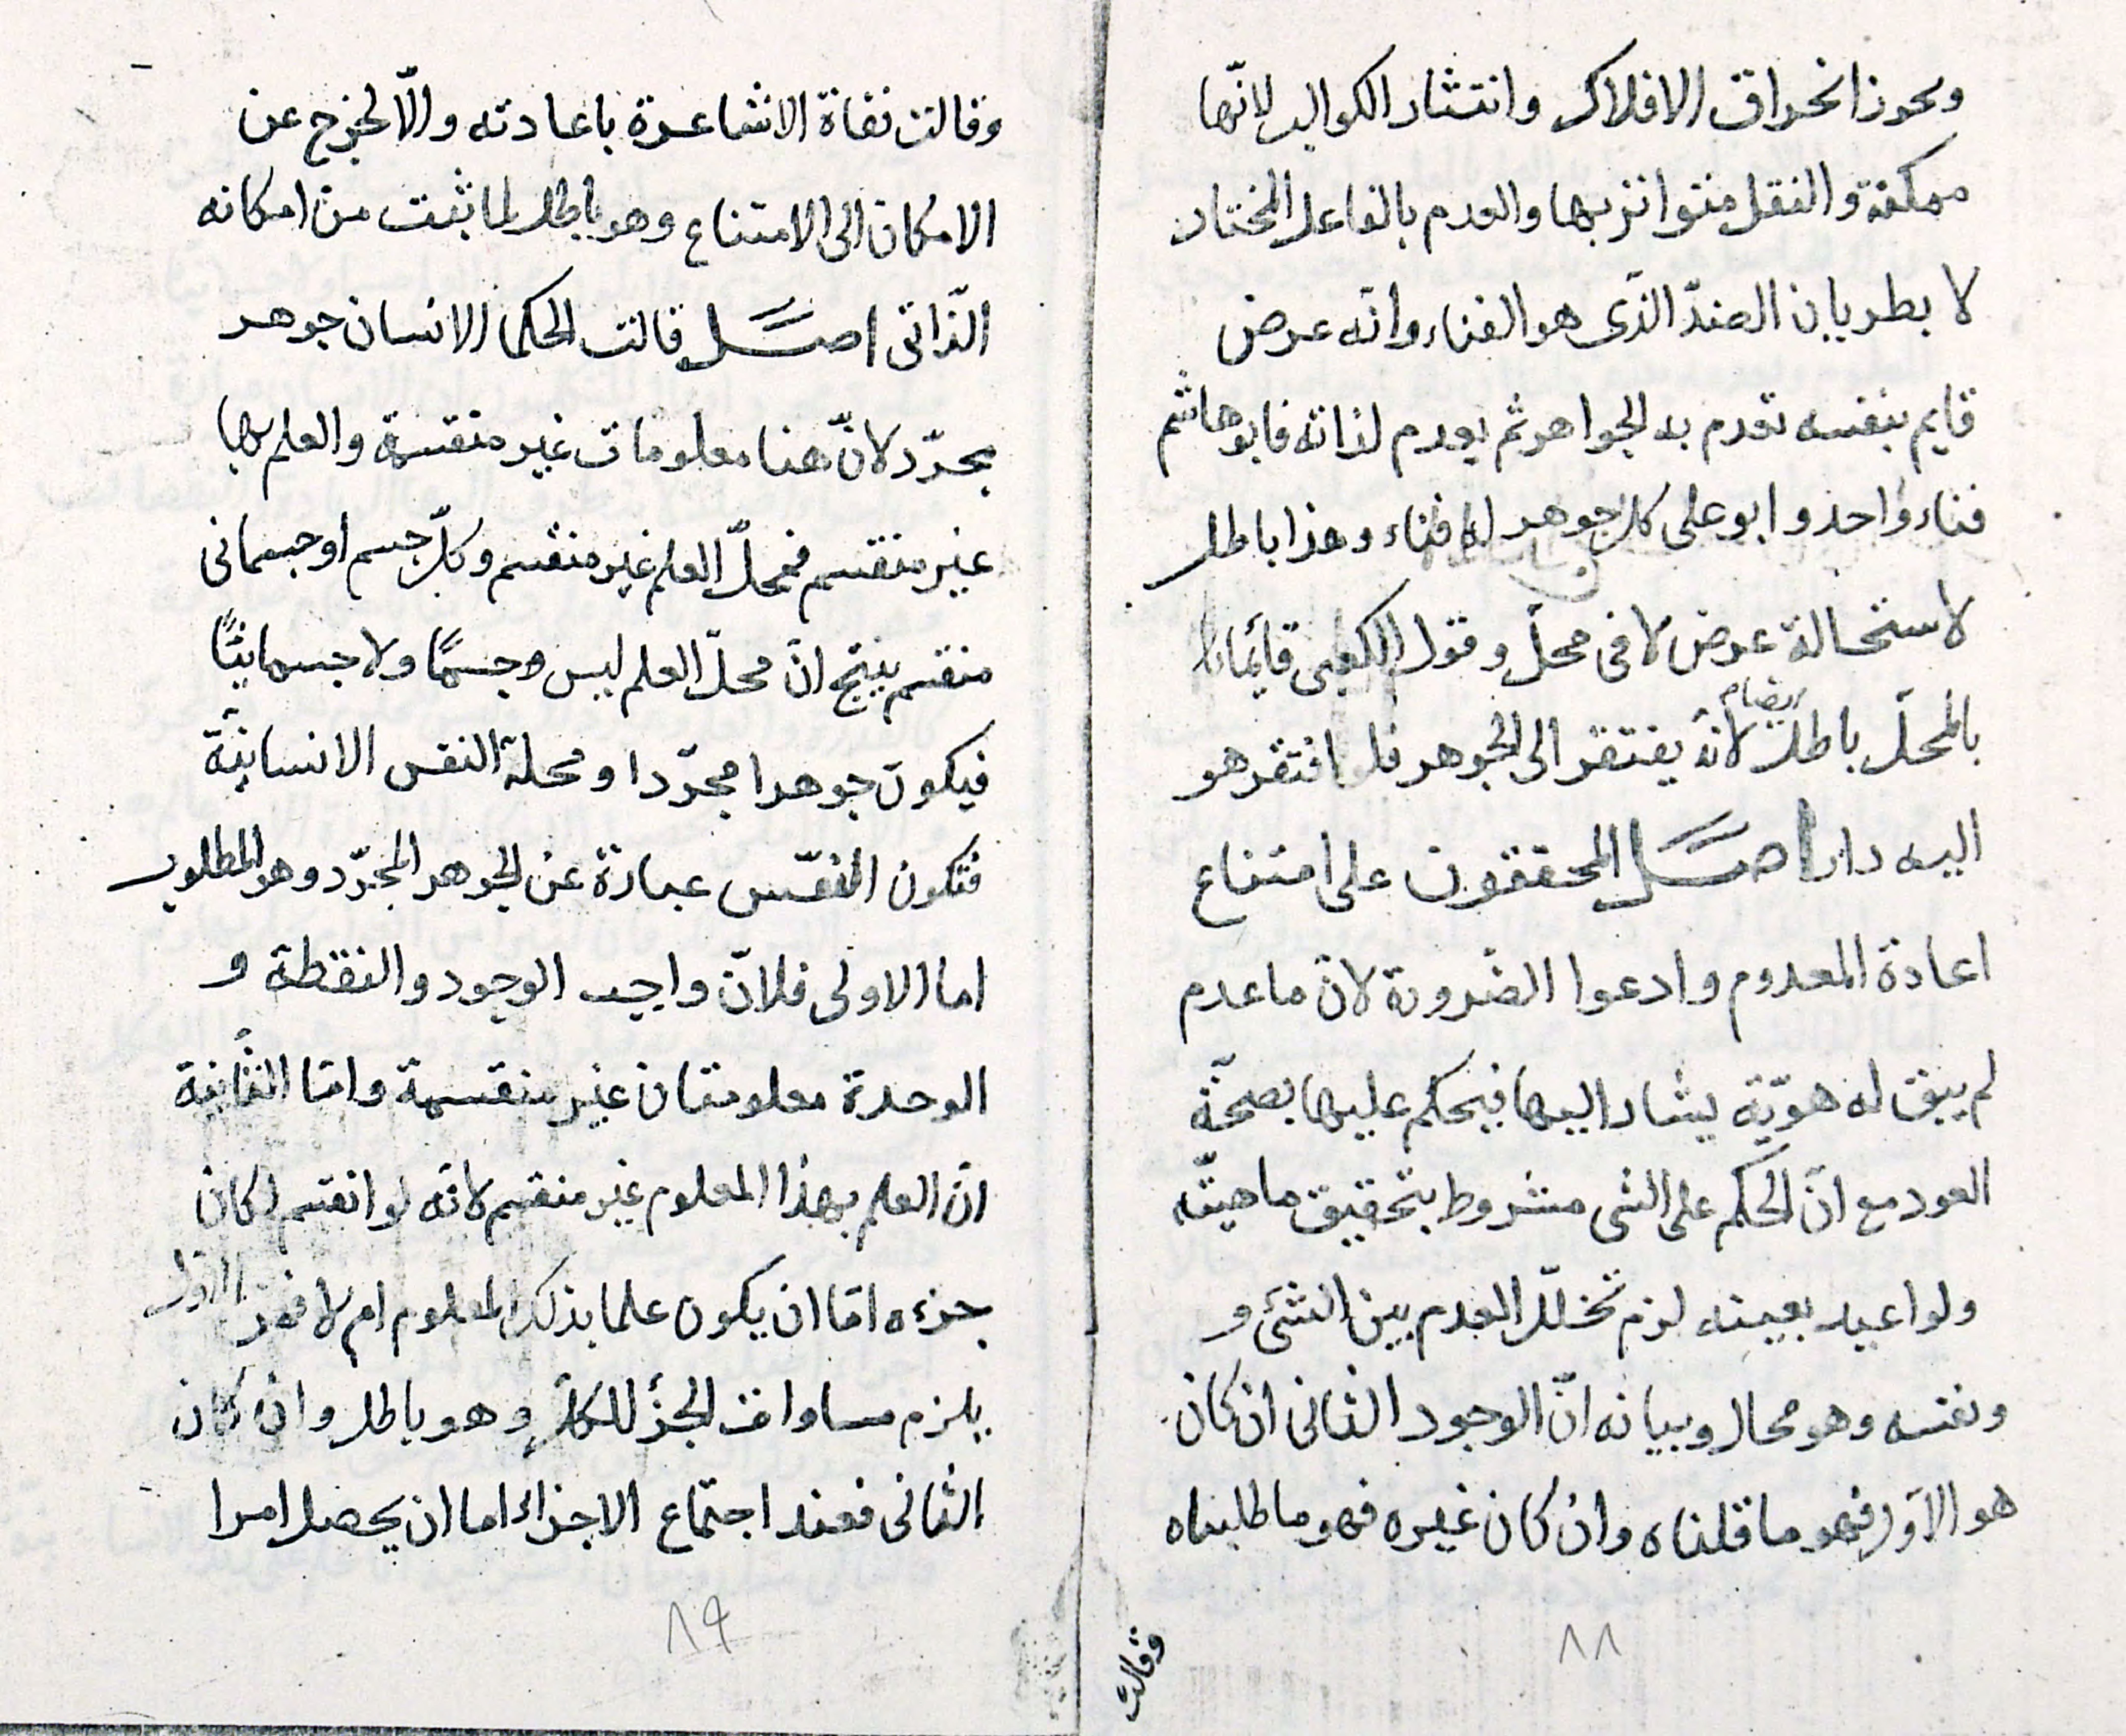 ويجوز انخراق الافلاك وانتثار الكواكب لانّها
ممكنة والنقل متواتر بها والعدم بالفاعل المختار
لا بطريان الضدّ الذّى هو الفناء وانّه عرض
قايم بنفسه تعدم به الجواهر ثم يعدم لذاته فابو هاشم
فناء واحد وابو على كل جوهر له فناء وهذا باطل
لاستحالة عرض لا فى محلّ وقول الكعبى قائما
بالمحلّ باطل ايضا لانّه يفتقر الى الجوهر فلو افتقر هو
اليه دار اصل المحققون على امتناع
اعادة المعدوم وادعوا الضّرورة لانّ ما عدم
لم يبق له هويّة يشار اليها فيحكم عليها بصحّة
العود مع انّ الحكم على الشى مشروط بتحقيق ماهيّته
ولو اعيد بعينه لزم تخلّل العدم بين الشئ و
ونفسه وهو محال وبيانه انّ الوجود الثانى ان كان
هو الاوّل فهو ما قلناه وان كان غيره فهو ما طلبناه
وقالت
٨٨
وقالت نفاة الاشاعرة باعادته والّا لخرج عن
الامكان الى الامتناع وهو باطل لما ثبت من امكانه
الذّاتى اصل قالت الحكما الانسان جوهر
مجرّد لانّ هنا معلومات غير منقسمة والعلم بها
غير منقسم فمحلّ العلم غير منقسم وكلّ جسم او جسمانى
منقسم ينتج انّ محلّ العلم ليس جسمًا ولا جسمانيًّا
فيكون جوهرا مجرّدا ومحلة النفس الانسانيّة
فتكون النفس عبارة عن الجوهر المجرّد وهو المطلوب
اما الاولى فلانّ واجب الوجود والنقطة و
الوحدة معلومتان غير منقسمة وامّا الثّانية
انّ العلم بهذا المعلوم غير منقسم لانّه لو انقسم لكان
جزءه امّا ان يكون علما بذلك المعلوم ام لا فمن الاول
يلزم مساوات الجزء للكلّ وهو باطل وان كان
الثانى فعند اجتماع الاجزاء اما ان يحصل امرا
٨٩